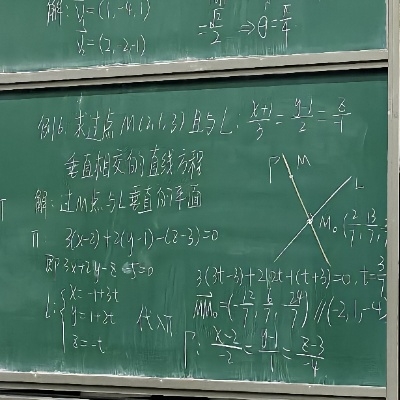 解: v₁=(1,-4,1)
v₂=(2,-2,-1)
= √2/2 ⇒ θ=π/4
例6. 求过点 M(2,1,3) 且与 L: (x+1)/3 = (y-1)/2 = z/-1
垂直相交的直线方程
解: 过M点与L垂直的平面
π 3(x-2)+2(y-1)-(z-3)=0
即 3x+2y-z-5=0
L: { x=-1+3t
y=1+2t 代入π
z=-t
Γ M
L
M₀ (2/7, 13/7,
3(3t-3)+2·2t-(-t-3)=0, t=3/7
MM₀=(-12/7, 6/7, -24/7) // (-2,1,-4)
Γ: (x-2)/-2 = (y-1)/1 = (z-3)/-4